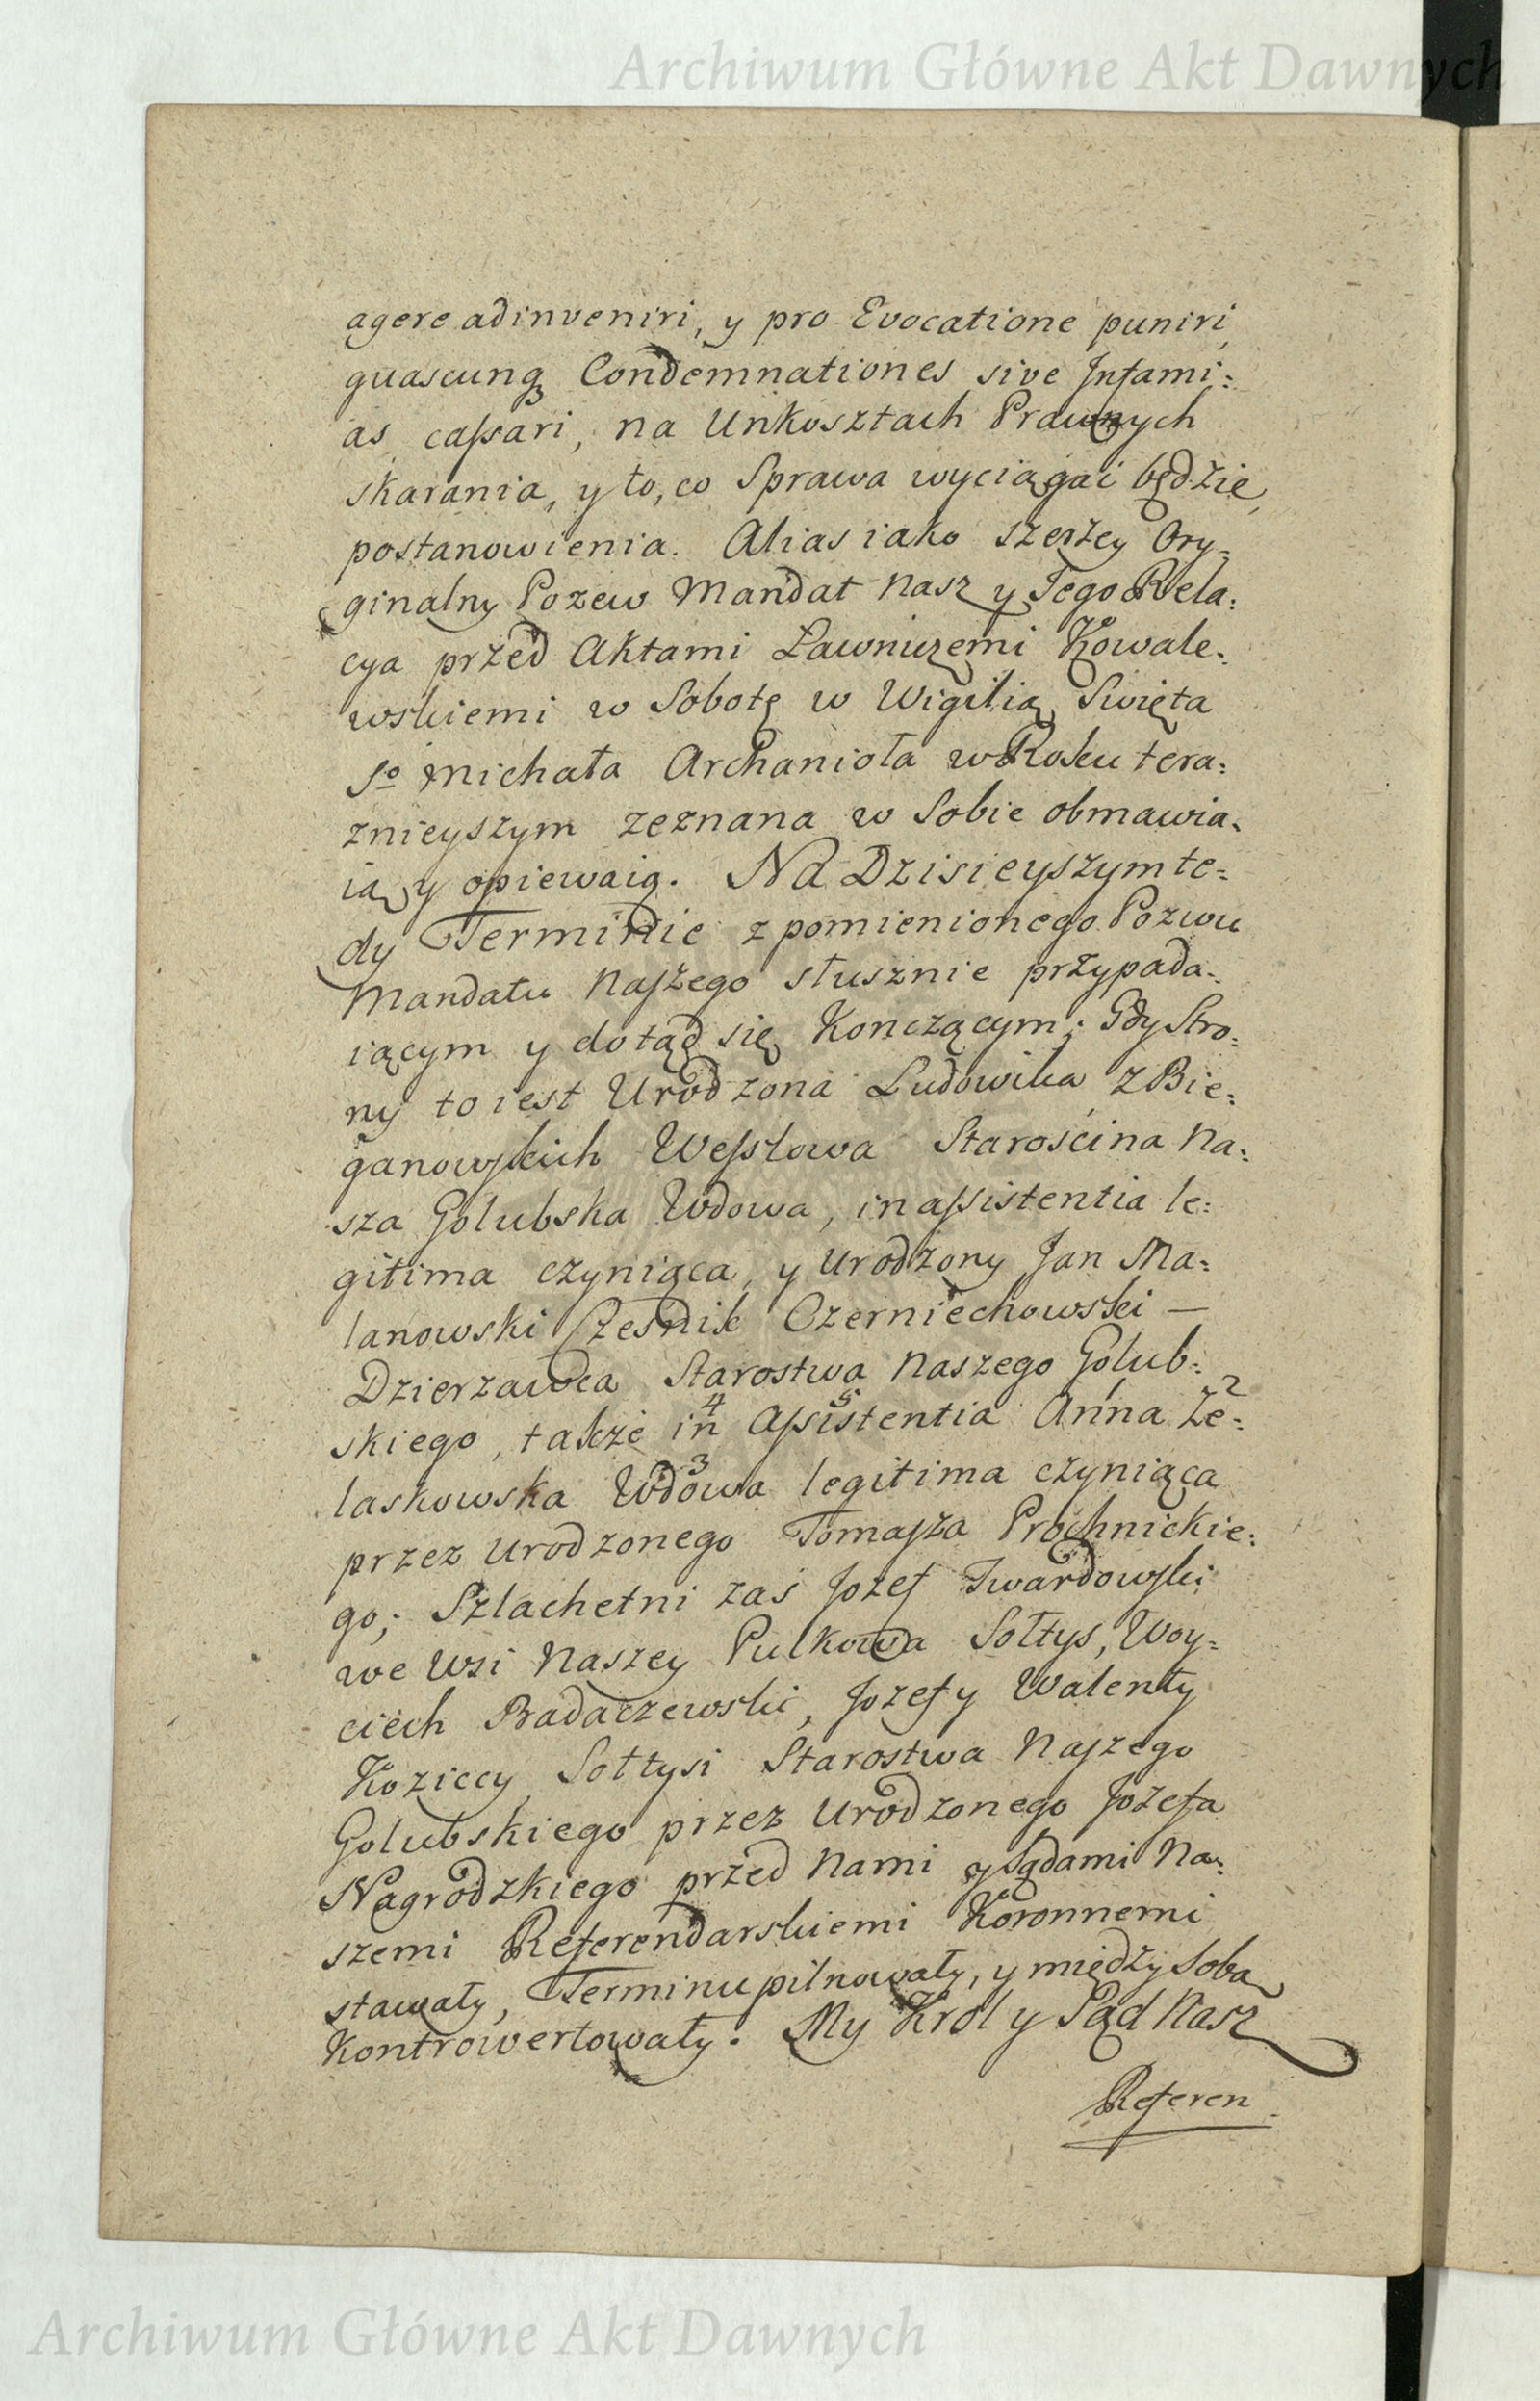 Archiwum Główne Akt Dawnych
agere adinveniri, y pro Evocatione puniri,
quascunqꝫ Condemnationes sive Infami=
as cassari, na Unkosztach Prawnych
skarania, y to, co Sprawa wyciągać będzie,
postanowienia. Alias iako szerzey Ory=
ginalny Pozew Mandat Nasz y Jego Rela=
cya przed Aktami Ławniczemi Kowale=
wskiemi w Sobotę w Wigilią Swięta
So Michała Archanioła w Roku tera=
znieyszym zeznana w Sobie obmawia=
ią y opiewaią. Na Dzisieyszym te=
dy Terminie z pomienionego Pozwu
Mandatu Naszego słusznie przypada=
iącym y dotąd się Konczącym; Gdy Stro=
ny to iest Urodzona Ludowika z Bie=
ganowskich Wessłowa Starościna Na=
sza Golubska Wdowa, in assistentia le=
gitima czyniąca, y Urodzony Jan Ma=
lanowski Cześnik Czerniechowski —
Dzierzawca Starostwa Naszego Golub=
skiego, także in 4 Assistentia 5 Anna 1 Że= 2
laskowska Wdowa 3 legitima czyniąca
przez Urodzonego Tomasza Prochnickie=
go; Szlachetni zaś Jozef Twardowski
we Wsi Naszey Pulkowa Sołtys, Woy=
ciech Badaczewski, Jozef y Walenty
Koziccy Sołtysi Starostwa Naszego
Golubskiego przez Urodzonego Jozefa
Nagrodzkiego przed Nami y Sądami Na=
szemi Referendarskiemi Koronnemi
stawały, Terminu pilnowały, y między Sobą
Kontrowertowały. My Krol y Sąd Nasz
Referen
Archiwum Główne Akt Dawnych